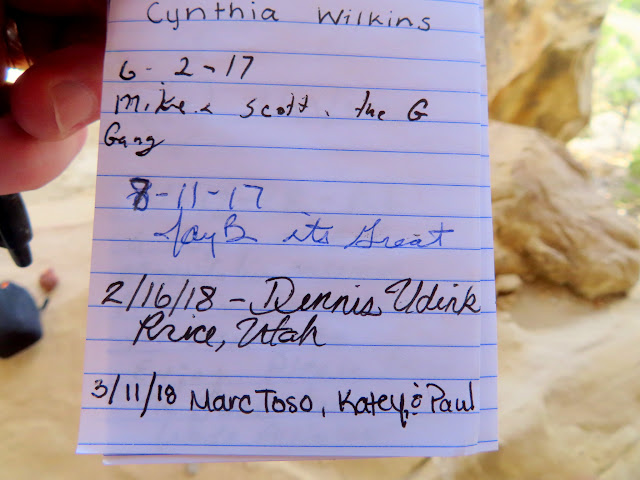 Cynthia Wilkins
6-2-17
Mike & Scott, the G
Gang
8-11-17
Jay B its Great
2/16/18 - Dennis Udink
Price, Utah
3/11/18 Marc Toso, Katey, & Paul